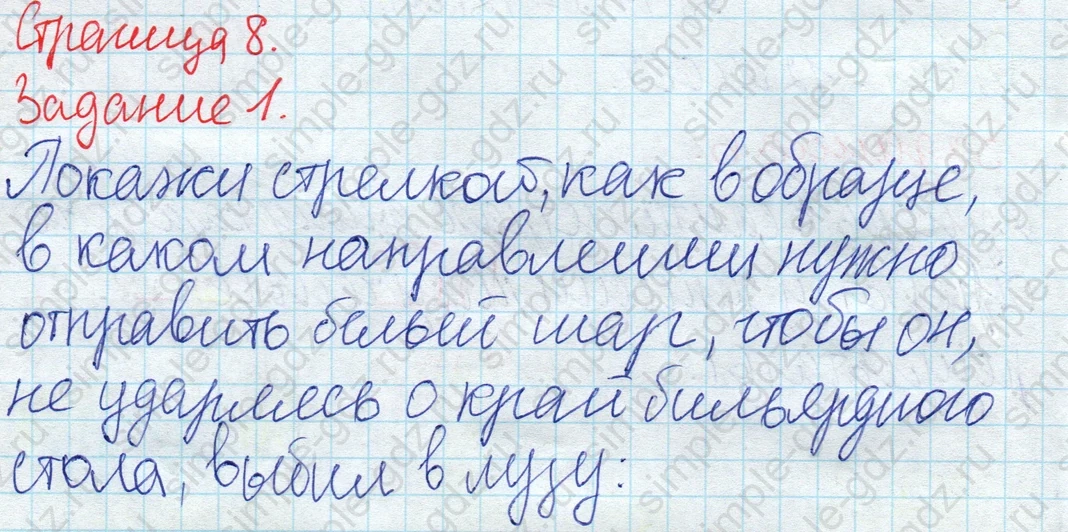 Страница 8.
Задание 1.
Покажи стрелкой, как в образце,
в каком направлении нужно
отправить белый шар, чтобы он,
не ударяясь о край бильярдного
стола, выбил в лузу:
simple-gdz.ru